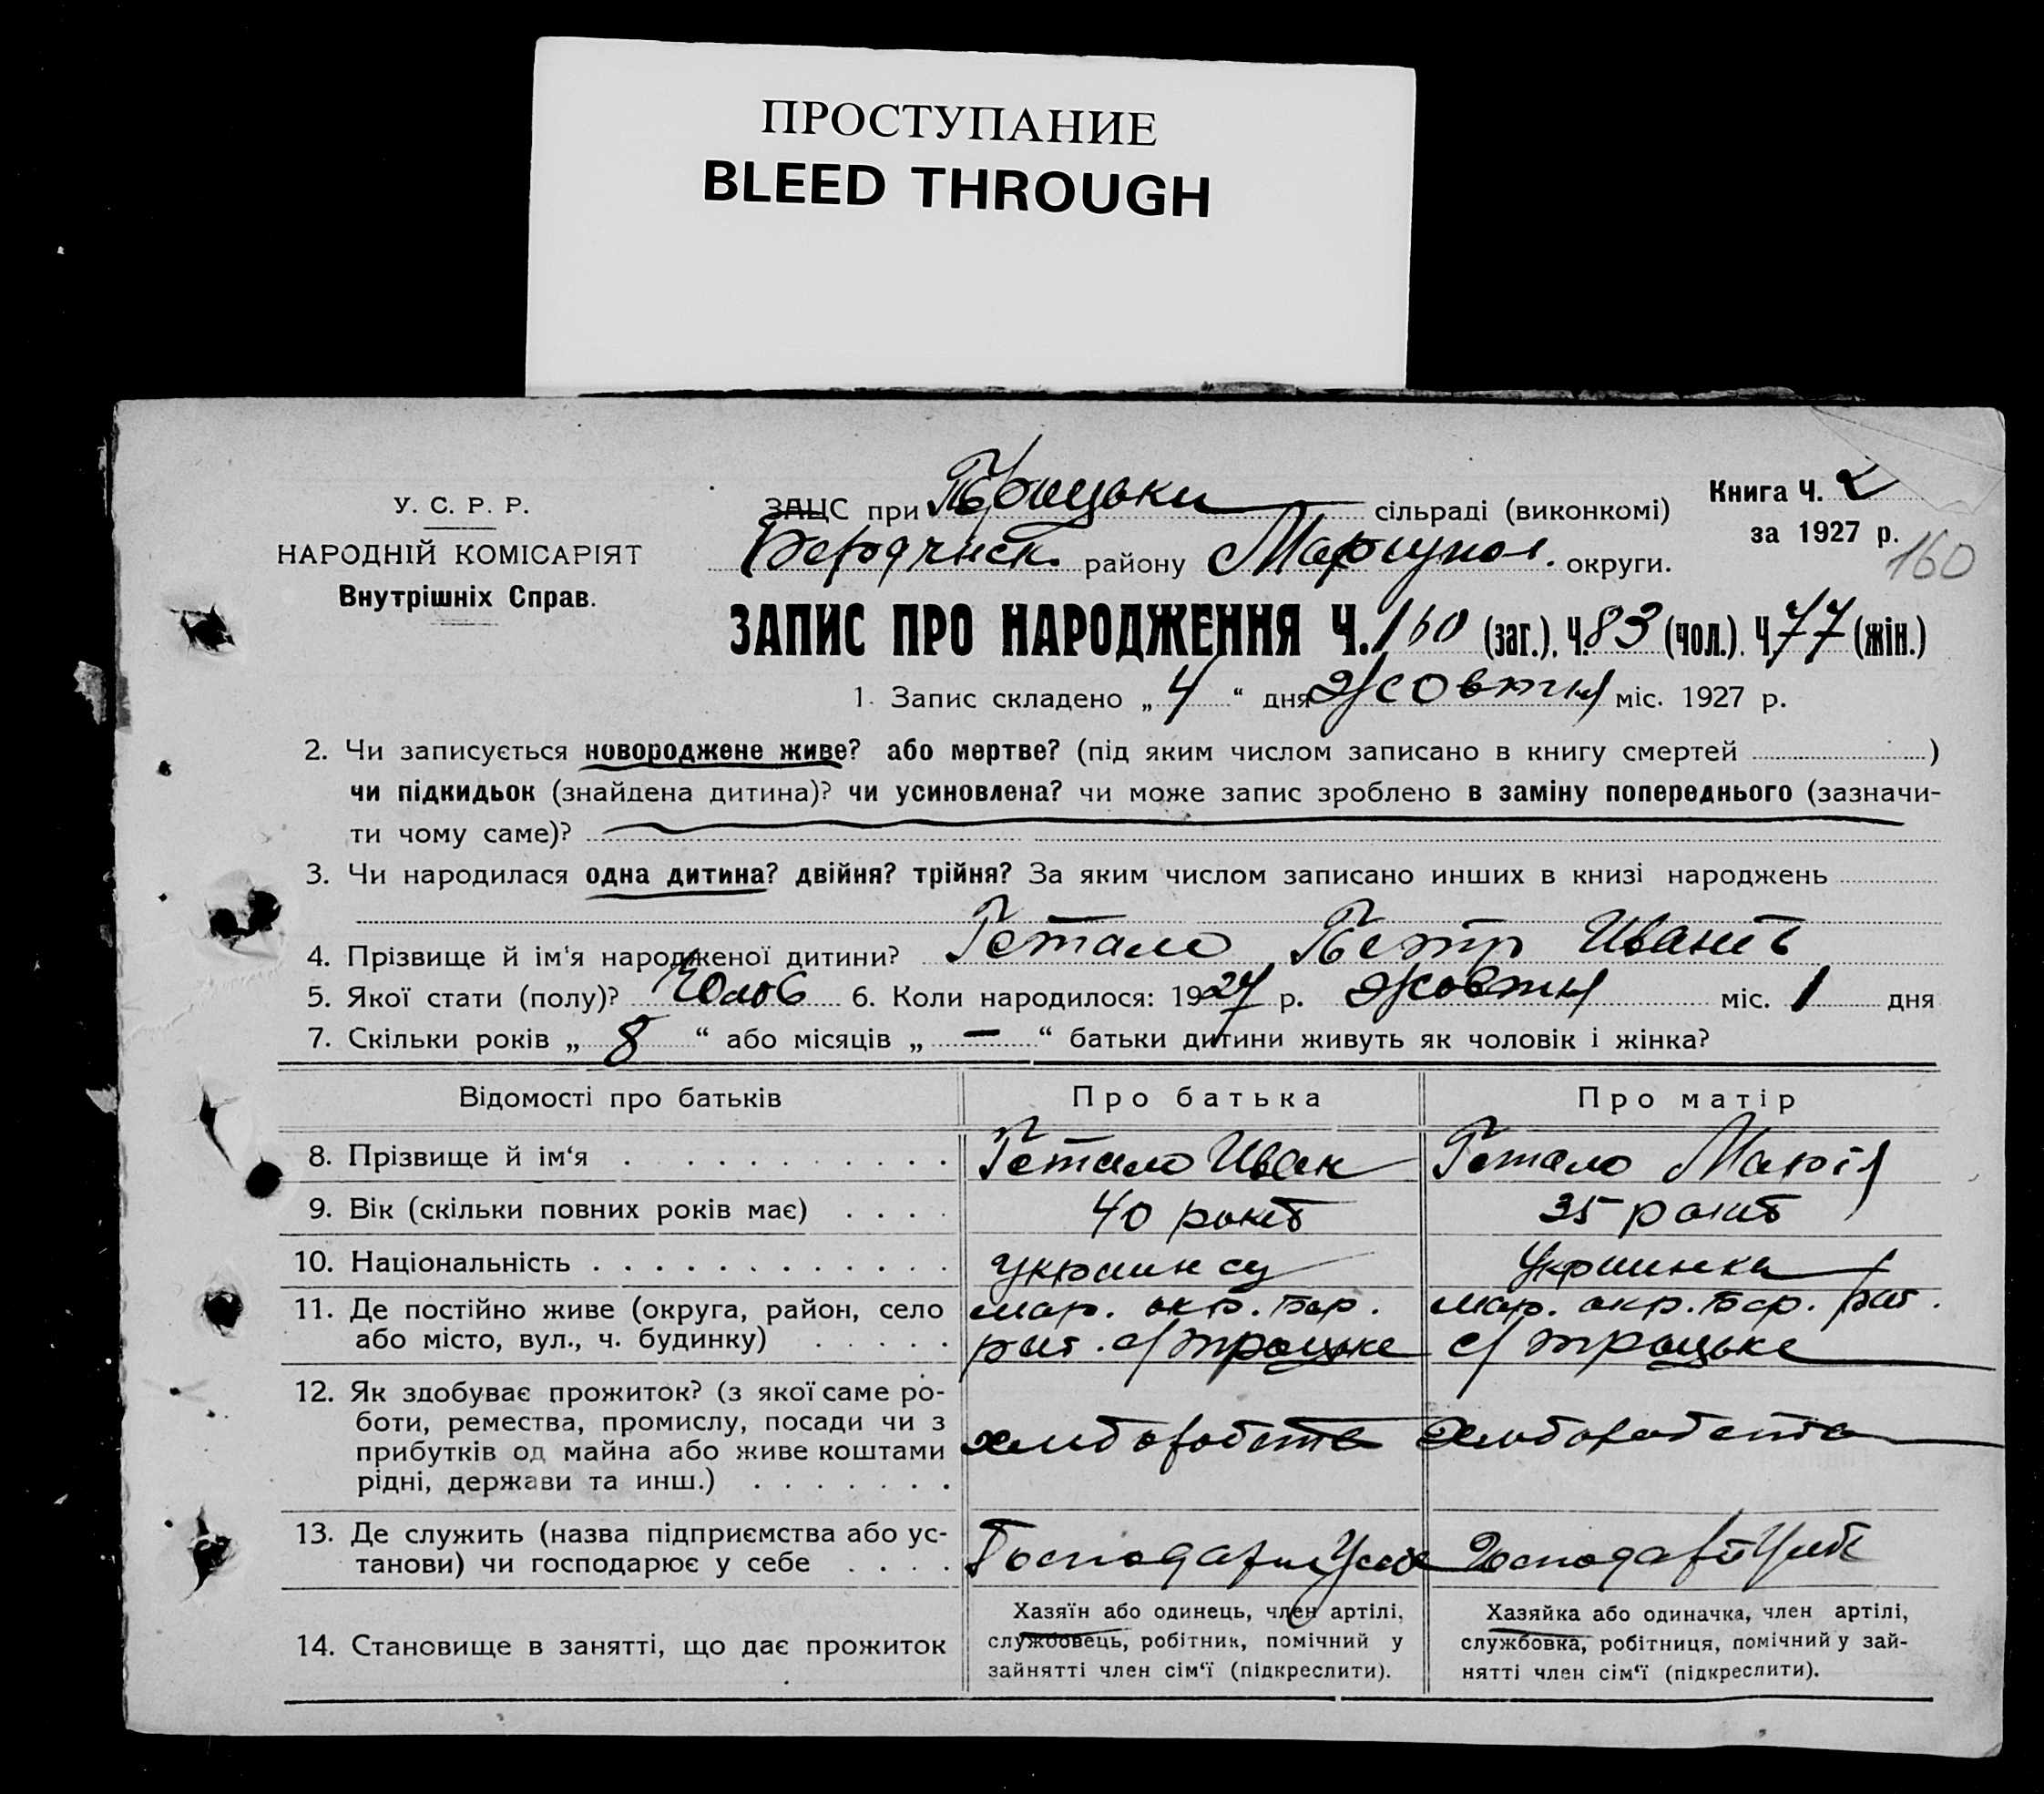 ПРОСТУПАНИЕ
BLEED THROUGH
У. С. Р. Р.
НАРОДНІЙ КОМІСАРІЯТ
Внутрішніх Справ.
ЗАЦС при Троцьки сільраді (виконкомі)
Книга Ч. 2
за 1927 р.
160
Бердянск. району Мариупол. округи.
ЗАПИС ПРО НАРОДЖЕННЯ Ч. 160 (заг.). Ч. 83 (чол.). Ч. 77 (жін.)
1. Запис складено „ 4 “ дня Жовтня міс. 1927 р.
2. Чи записується новороджене живе? або мертве? (під яким числом записано в книгу смертей )
чи підкидьок (знайдена дитина)? чи усиновлена? чи може запис зроблено в заміну попереднього (зазначи-
ти чому саме)?
3. Чи народилася одна дитина? двійня? трійня? За яким числом записано инших в книзі народжень
4. Прізвище й ім‘я народженої дитини? Гетало Петр Иванів
5. Якої стати (полу)? Чолов 6. Коли народилося: 1927 р. Жовтня міс. 1 дня
7. Скільки років „ 8 “ або місяців „ — “ батьки дитини живуть як чоловік і жінка?
Відомості про батьків Про батька Про матір
8. Прізвище й ім‘я Гетало Иван Гетало Марія
9. Вік (скільки повних років має) 40 років 35 років
10. Національність украинец Украинка
11. Де постійно живе (округа, район, село мар. окр. Бер. мар. окр. Бер. рай.
або місто, вул., ч. будинку) рай. с/ троцьке с/ троцьке
12. Як здобуває прожиток? (з якої саме ро-
боти, ремества, промислу, посади чи з
прибутків од майна або живе коштами
рідні, держави та инш.)
13. Де служить (назва підприємства або ус-
танови) чи господарює у себе
Хазяїн або одинець, член артілі, Хазяйка або одиначка, член артілі,
14. Становище в занятті, що дає прожиток службовець, робітник, помічний у службовка, робітниця, помічний у зай-
зайнятті член сім‘ї (підкреслити). нятті член сім‘ї (підкреслити).